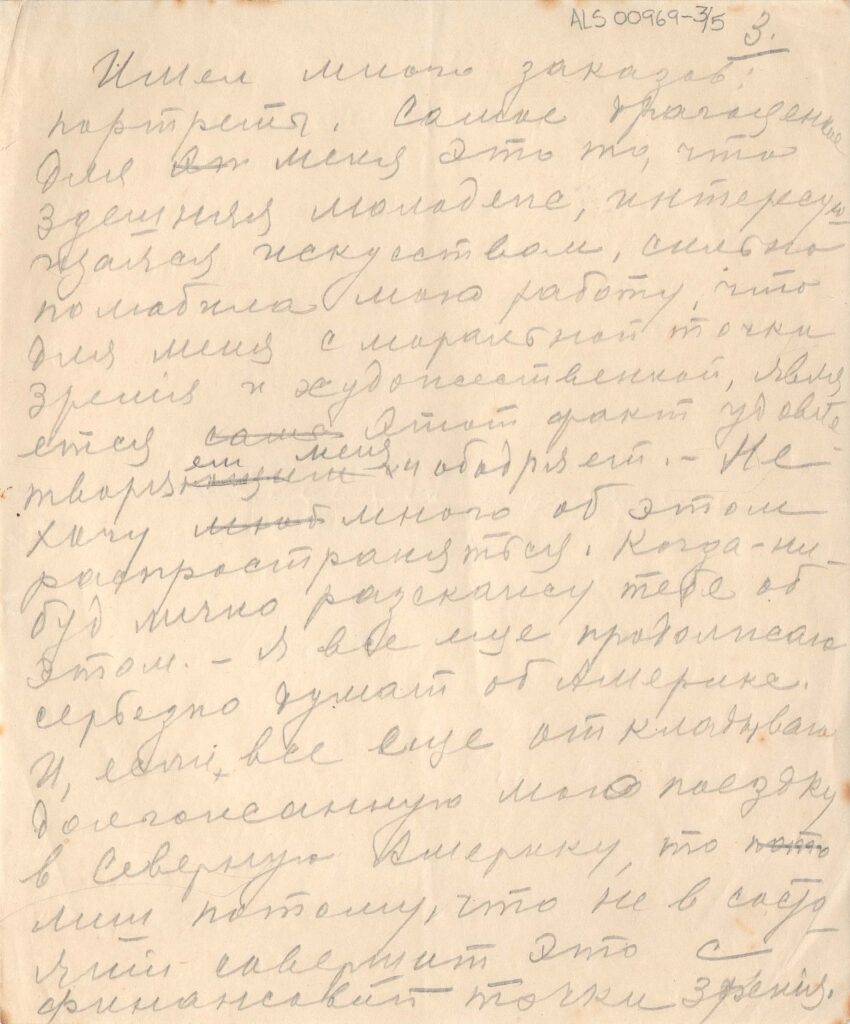 ALS 00969-3/5
3.
Имел много заказов:
портреты. Самое драгоценное
для меня это то, что
здешняя молодежь, интересую
щаяся искусством, сильно
полюбила мою работу, что
для меня с моральной точки
зренія и художественной, явля
ется само этот факт удовле
творяет меня и ободряет. – Не
хочу много об этом
распространяться. Когда-ни-
буд лично разскажу тебе об
этом. – Я все еще продолжаю
сербезно думат об Америке.
И, если, все еще откладываю
долгожданную мою поездку
в Северную Америку, то
лиш потому, что не в состо
яніи совершит это с
финансовой точки зренія.